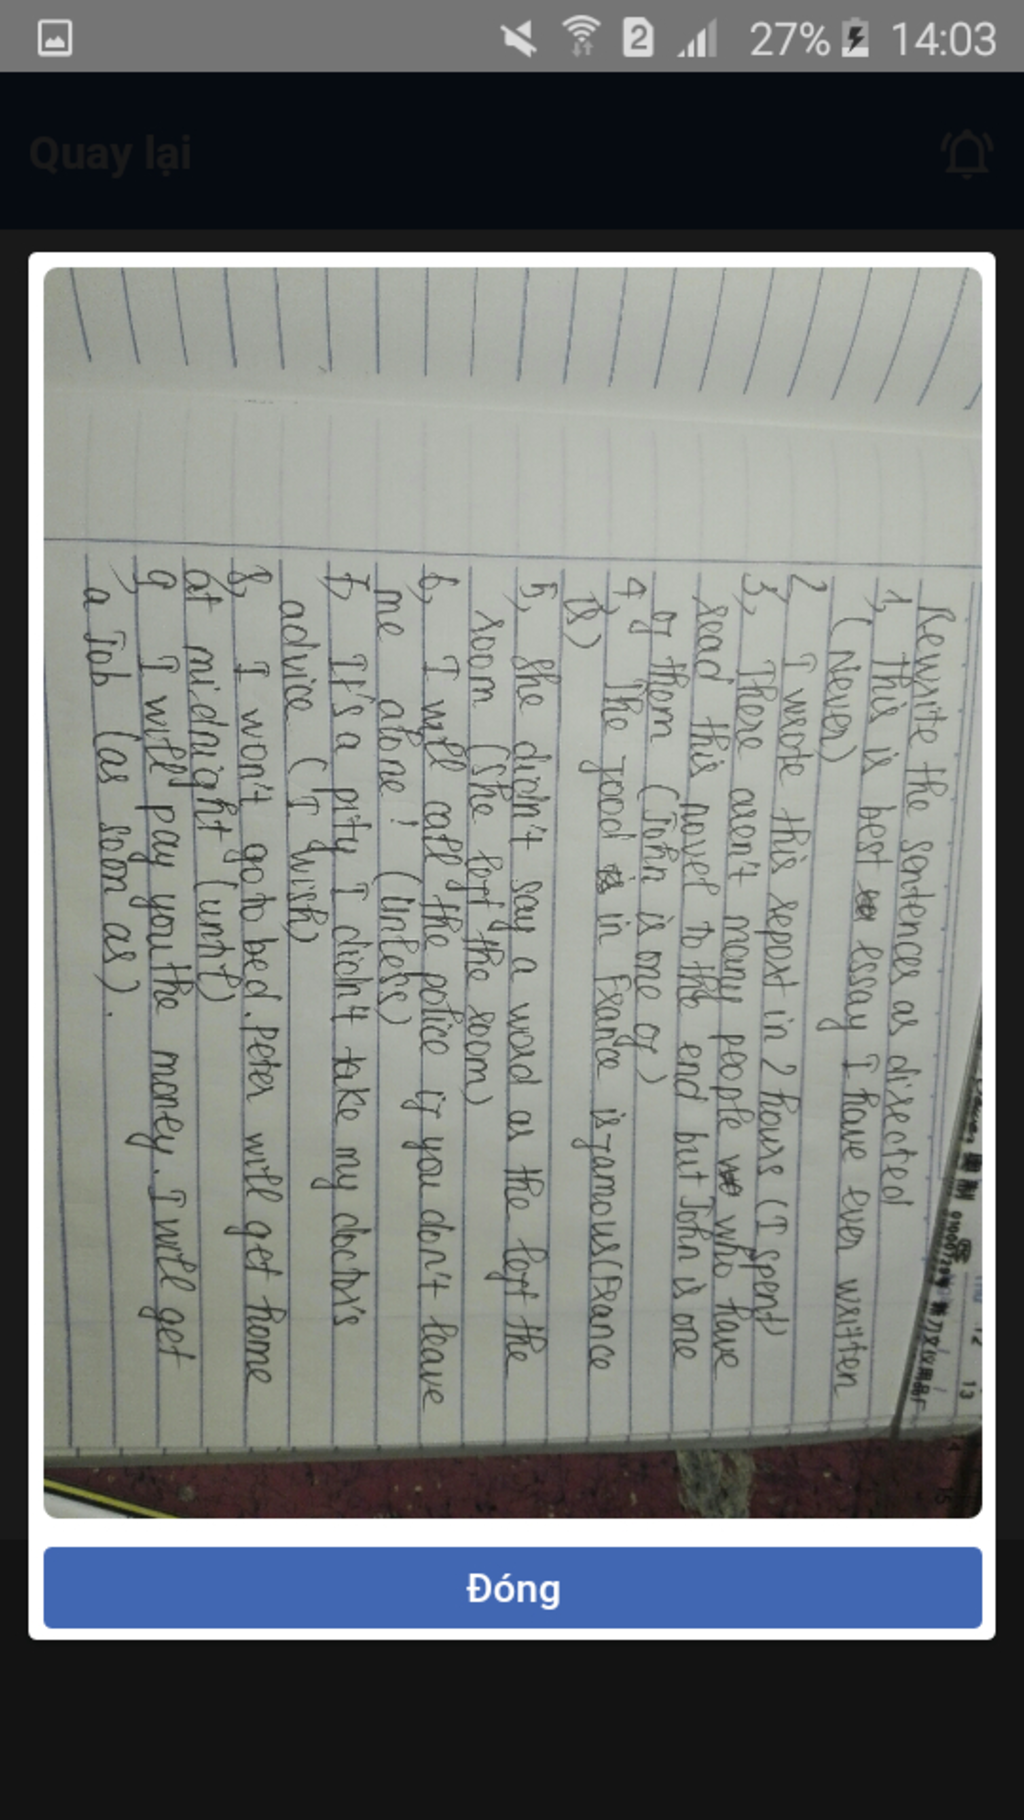 27% 14:03
Quay lại
Rewrite the sentences as directed
1, This is best essay I have ever written
(Never)
2, I wrote this report in 2 hours (I spent)
3, There aren't many people who have
read this novel to the end but John is one
of them (John is one of)
4, The food in France is famous (France
is)
5, She didn't say a word as the left the
room (She left the room)
6, I will call the police if you don't leave
me alone! (Unless)
7, It's a pity I didn't take my doctor's
advice (I wish)
8, I won't go to bed. Peter will get home
at midnight (until)
9, I will pay you the money. I will get
a Job (as soon as).
12
13
15
Đóng